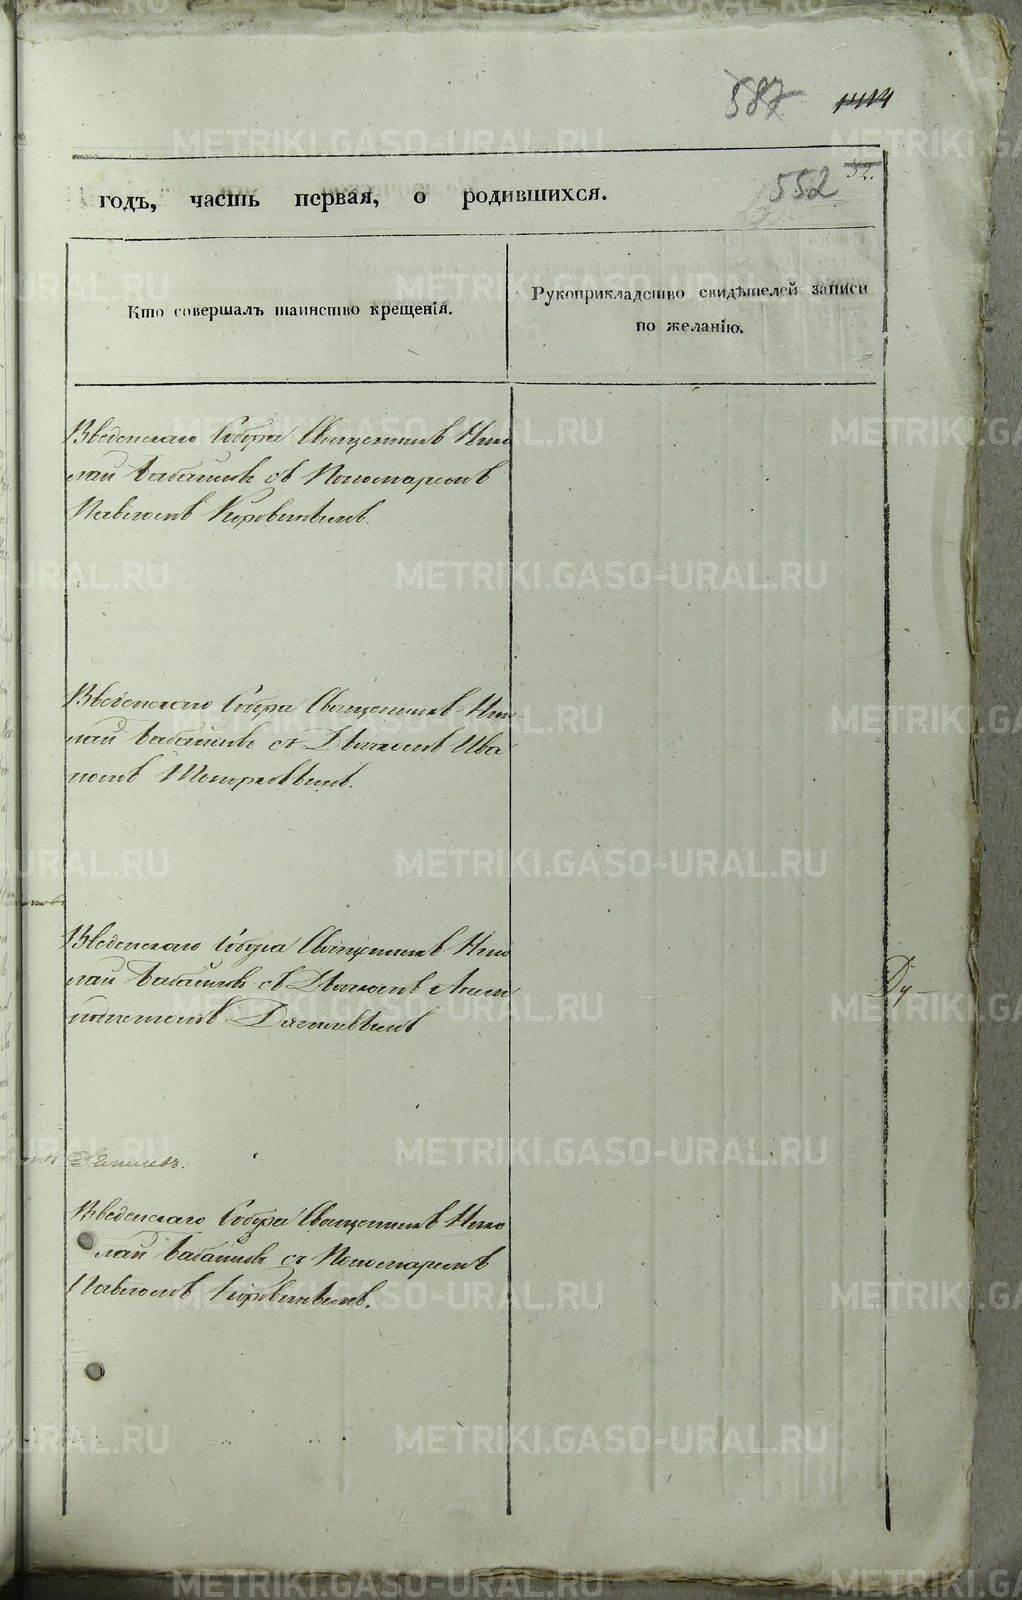 587
1414
552
52.
годъ, часть первая, о родившихся.
Кто совершалъ таинство крещенія.
Рукоприкладство свидѣтелей записи
по желанію.
Введенскаго Собора Священникъ Нико
лай Бабайловъ съ Пономаремъ
Павломъ
Введенскаго Собора Священникъ Нико
лай Бабайловъ съ Дьячкомъ Ива
номъ
Введенскаго Собора Священникъ Нико
лай Бабайловъ съ Дьячкомъ
Введенскаго Собора Священникъ Нико
лай Бабайловъ съ Пономаремъ
Павломъ
METRIKI.GASO-URAL.RU